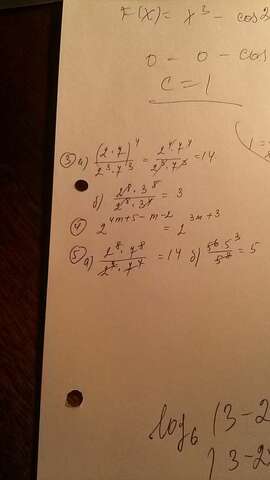 F(x) = x³ - cos 2
0 - 0 - cos
C = 1
③ а) (2·7)⁴ / 2³·7³ = 2⁴·7⁴ / 2³·7³ = 14
б) 2⁸·3⁸ / 2⁸·3⁷ = 3
④ 2^(4m+5-m-2) = 2^(3m+3)
⑤ а) 2⁸·7⁸ / 2⁷·7⁷ = 14 б) 5⁶·5³ / 5⁸ = 5
log₆ (3-2
3-2